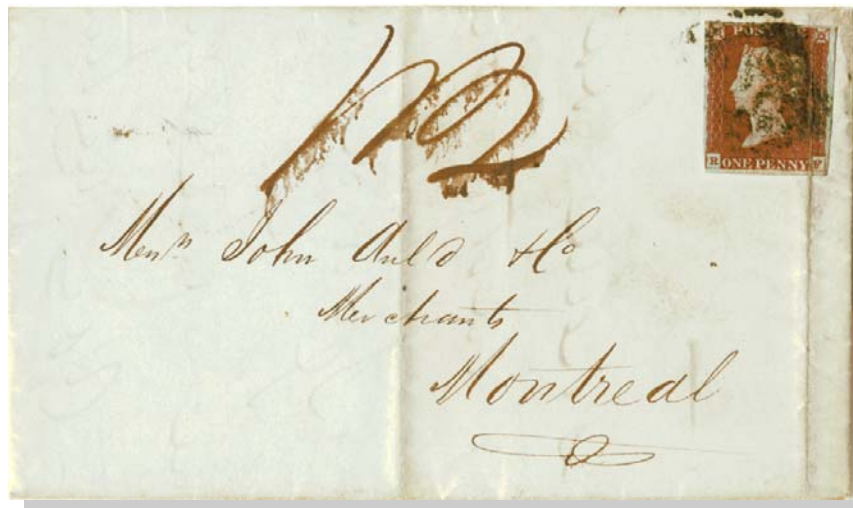 POSTAGE
1/2
R ONE PENNY F
Messrs John Auld & Co
Merchants
Montreal